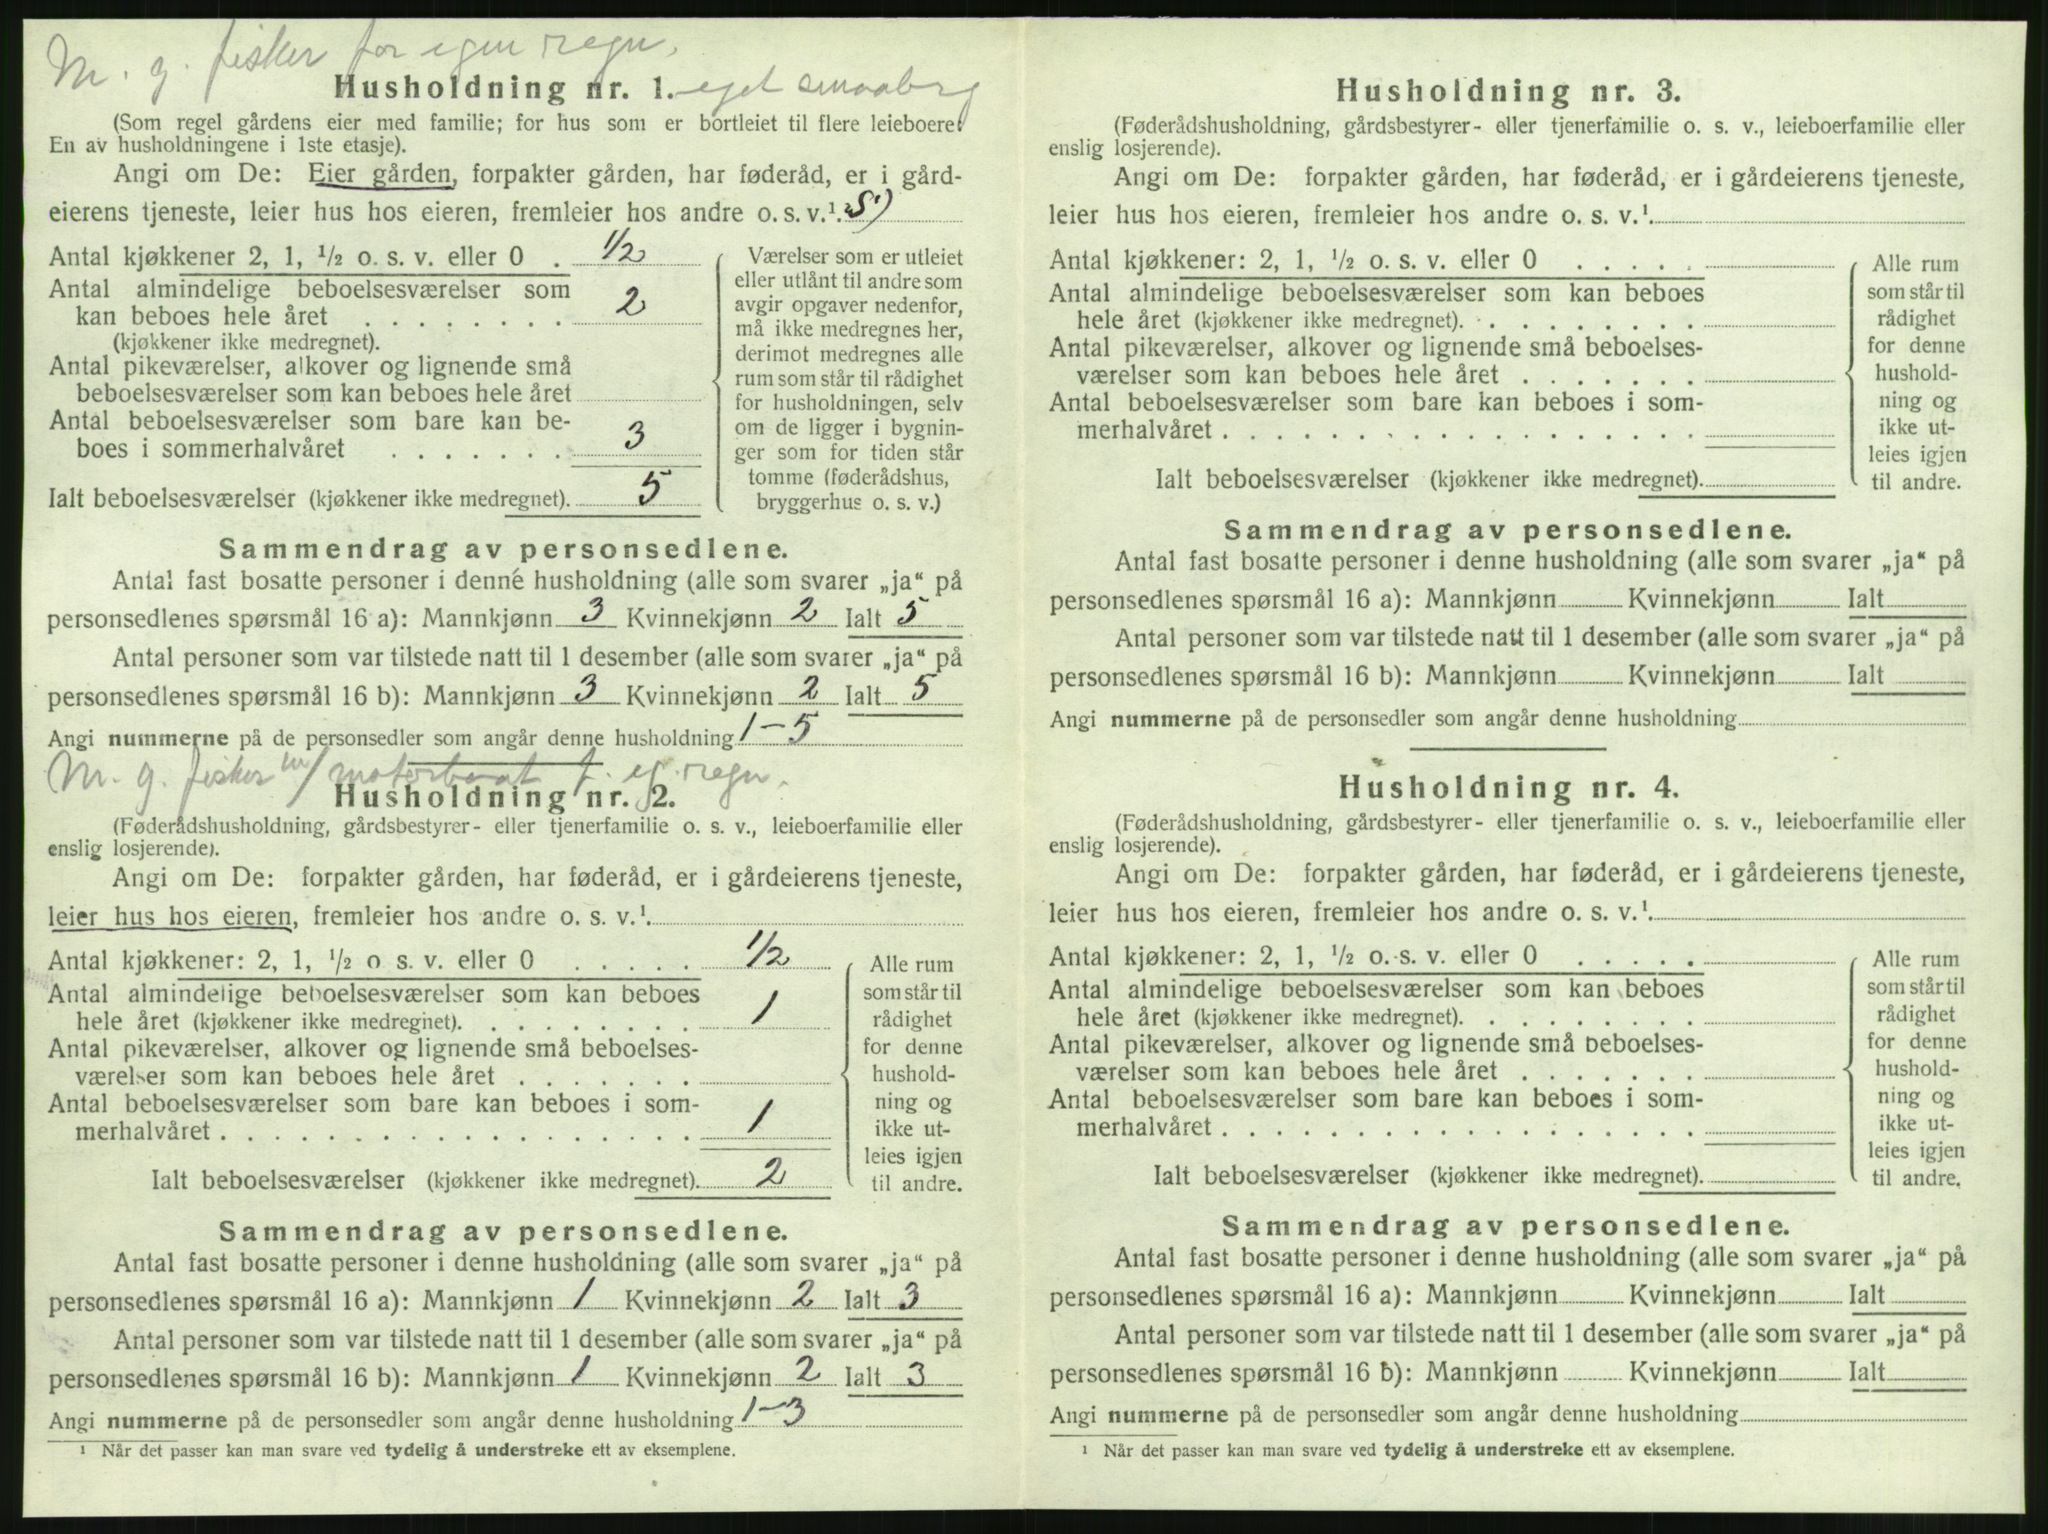 M. g. fisker for egen regn.
Husholdning nr. 1. eget smaabrug
(Som regel gårdens eier med familie; for hus som er bortleiet til flere leieboere:
En av husholdningene i 1ste etasje).
Angi om De: Eier gården, forpakter gården, har føderåd, er i gård-
eierens tjeneste, leier hus hos eieren, fremleier hos andre o. s. v.¹
Antal kjøkkener 2, 1, ½ o. s. v. eller 0 . 1/2
Antal almindelige beboelsesværelser som
kan beboes hele året . . . . . . . . 2
(kjøkkener ikke medregnet).
Antal pikeværelser, alkover og lignende små
beboelsesværelser som kan beboes hele året
Antal beboelsesværelser som bare kan be-
boes i sommerhalvåret . . . . . . . 3
Ialt beboelsesværelser (kjøkkener ikke medregnet). 5
Værelser som er utleiet
eller utlånt til andre som
avgir opgaver nedenfor,
må ikke medregnes her,
derimot medregnes alle
rum som står til rådighet
for husholdningen, selv
om de ligger i bygnin-
ger som for tiden står
tomme (føderådshus,
bryggerhus o. s. v.)
Sammendrag av personsedlene.
Antal fast bosatte personer i denne husholdning (alle som svarer „ja“ på
personsedlenes spørsmål 16 a): Mannkjønn 3 Kvinnekjønn 2 Ialt 5
Antal personer som var tilstede natt til 1 desember (alle som svarer „ja“ på
personsedlenes spørsmål 16 b): Mannkjønn 3 Kvinnekjønn 2 Ialt 5
Angi nummerne på de personsedler som angår denne husholdning 1-5
M. g. fisker m/ motorbaat f. eg. regn.
Husholdning nr. 2.
(Føderådshusholdning, gårdsbestyrer- eller tjenerfamilie o. s. v., leieboerfamilie eller
enslig losjerende).
Angi om De: forpakter gården, har føderåd, er i gårdeierens tjeneste,
leier hus hos eieren, fremleier hos andre o. s. v.¹
Antal kjøkkener: 2, 1, ½ o s. v. eller 0 . . . . . 1/2
Antal almindelige beboelsesværelser som kan beboes
hele året (kjøkkener ikke medregnet). . . . . . . . . 1
Antal pikeværelser, alkover og lignende små beboelses-
værelser som kan beboes hele året . . . . . . .
Antal beboelsesværelser som bare kan beboes i som-
merhalvåret . . . . . . . . . . . . . . . . . . 1
Ialt beboelsesværelser (kjøkkener ikke medregnet). 2
Alle rum
som står til
rådighet
for denne
hushold-
ning og
ikke ut-
leies igjen
til andre.
Sammendrag av personsedlene.
Antal fast bosatte personer i denne husholdning (alle som svarer „ja“ på
personsedlenes spørsmål 16 a): Mannkjønn 1 Kvinnekjønn 2 Ialt 3
Antal personer som var tilstede natt til 1 desember (alle som svarer „ja“ på
personsedlenes spørsmål 16 b): Mannkjønn 1 Kvinnekjønn 2 Ialt 3
Angi nummerne på de personsedler som angår denne husholdning 1-3
¹ Når det passer kan man svare ved tydelig å understreke ett av eksemplene.
Husholdning nr. 3.
(Føderådshusholdning, gårdsbestyrer- eller tjenerfamilie o. s. v., leieboerfamilie eller
enslig losjerende).
Angi om De: forpakter gården, har føderåd, er i gårdeierens tjeneste,
leier hus hos eieren, fremleier hos andre o. s. v.¹
Antal kjøkkener: 2, 1, ½ o. s. v. eller 0 . . . . .
Antal almindelige beboelsesværelser som kan beboes
hele året (kjøkkener ikke medregnet). . . . . . . . .
Antal pikeværelser, alkover og lignende små beboelses-
værelser som kan beboes hele året . . . . . . .
Antal beboelsesværelser som bare kan beboes i som-
merhalvåret . . . . . . . . . . . . . . . . . .
Ialt beboelsesværelser (kjøkkener ikke medregnet).
Alle rum
som står til
rådighet
for denne
hushold-
ning og
ikke ut-
leies igjen
til andre.
Sammendrag av personsedlene.
Antal fast bosatte personer i denne husholdning (alle som svarer „ja“ på
personsedlenes spørsmål 16 a): Mannkjønn Kvinnekjønn Ialt
Antal personer som var tilstede natt til 1 desember (alle som svarer „ja“ på
personsedlenes spørsmål 16 b): Mannkjønn Kvinnekjønn Ialt
Angi nummerne på de personsedler som angår denne husholdning
Husholdning nr. 4.
(Føderådshusholdning, gårdsbestyrer- eller tjenerfamilie o. s. v., leieboerfamilie eller
enslig losjerende).
Angi om De: forpakter gården, har føderåd, er i gårdeierens tjeneste,
leier hus hos eieren, fremleier hos andre o. s. v.¹
Antal kjøkkener: 2, 1, ½ o. s. v. eller 0 . . . . .
Antal almindelige beboelsesværelser som kan beboes
hele året (kjøkkener ikke medregnet). . . . . . . . .
Antal pikeværelser, alkover og lignende små beboelses-
værelser som kan beboes hele året . . . . . . .
Antal beboelsesværelser som bare kan beboes i som-
merhalvåret . . . . . . . . . . . . . . . . . .
Ialt beboelsesværelser (kjøkkener ikke medregnet).
Alle rum
som står til
rådighet
for denne
hushold-
ning og
ikke ut-
leies igjen
til andre.
Sammendrag av personsedlene.
Antal fast bosatte personer i denne husholdning (alle som svarer „ja“ på
personsedlenes spørsmål 16 a): Mannkjønn Kvinnekjønn Ialt
Antal personer som var tilstede natt til 1 desember (alle som svarer „ja“ på
personsedlenes spørsmål 16 b): Mannkjønn Kvinnekjønn Ialt
Angi nummerne på de personsedler som angår denne husholdning
¹ Når det passer kan man svare ved tydelig å understreke ett av eksemplene.